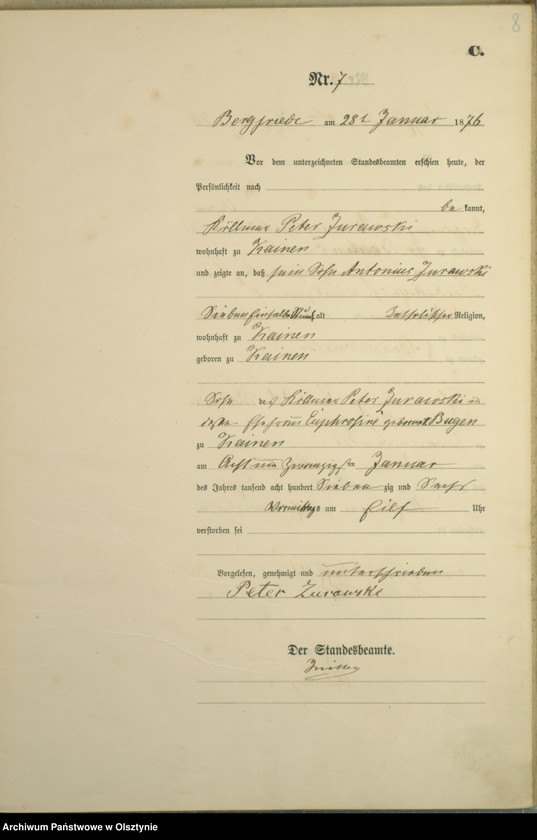 8
C.
Nr. 7
Bergfriede am 28t Januar 1876
Vor dem unterzeichneten Standesbeamten erschien heute, der
Persönlichkeit nach
be kannt,
Köllmer Peter Zurawski
wohnhaft zu Krainen
und zeigte an, daß sein Sohn Antonius Zurawski
Sieben alt Katholischer Religion,
wohnhaft zu Krainen
geboren zu Krainen
Sohn des Köllmer Peter Zurawski und
Ehefrau Euphrosine geborne Bugen
zu Krainen
am Acht und Zwanzigsten Januar
des Jahres tausend acht hundert Sieben zig und Sechs
Vormittags um Eilf Uhr
verstorben sei
Vorgelesen, genehmigt und unterschrieben
Peter Zurawski
Der Standesbeamte.
Archiwum Państwowe w Olsztynie